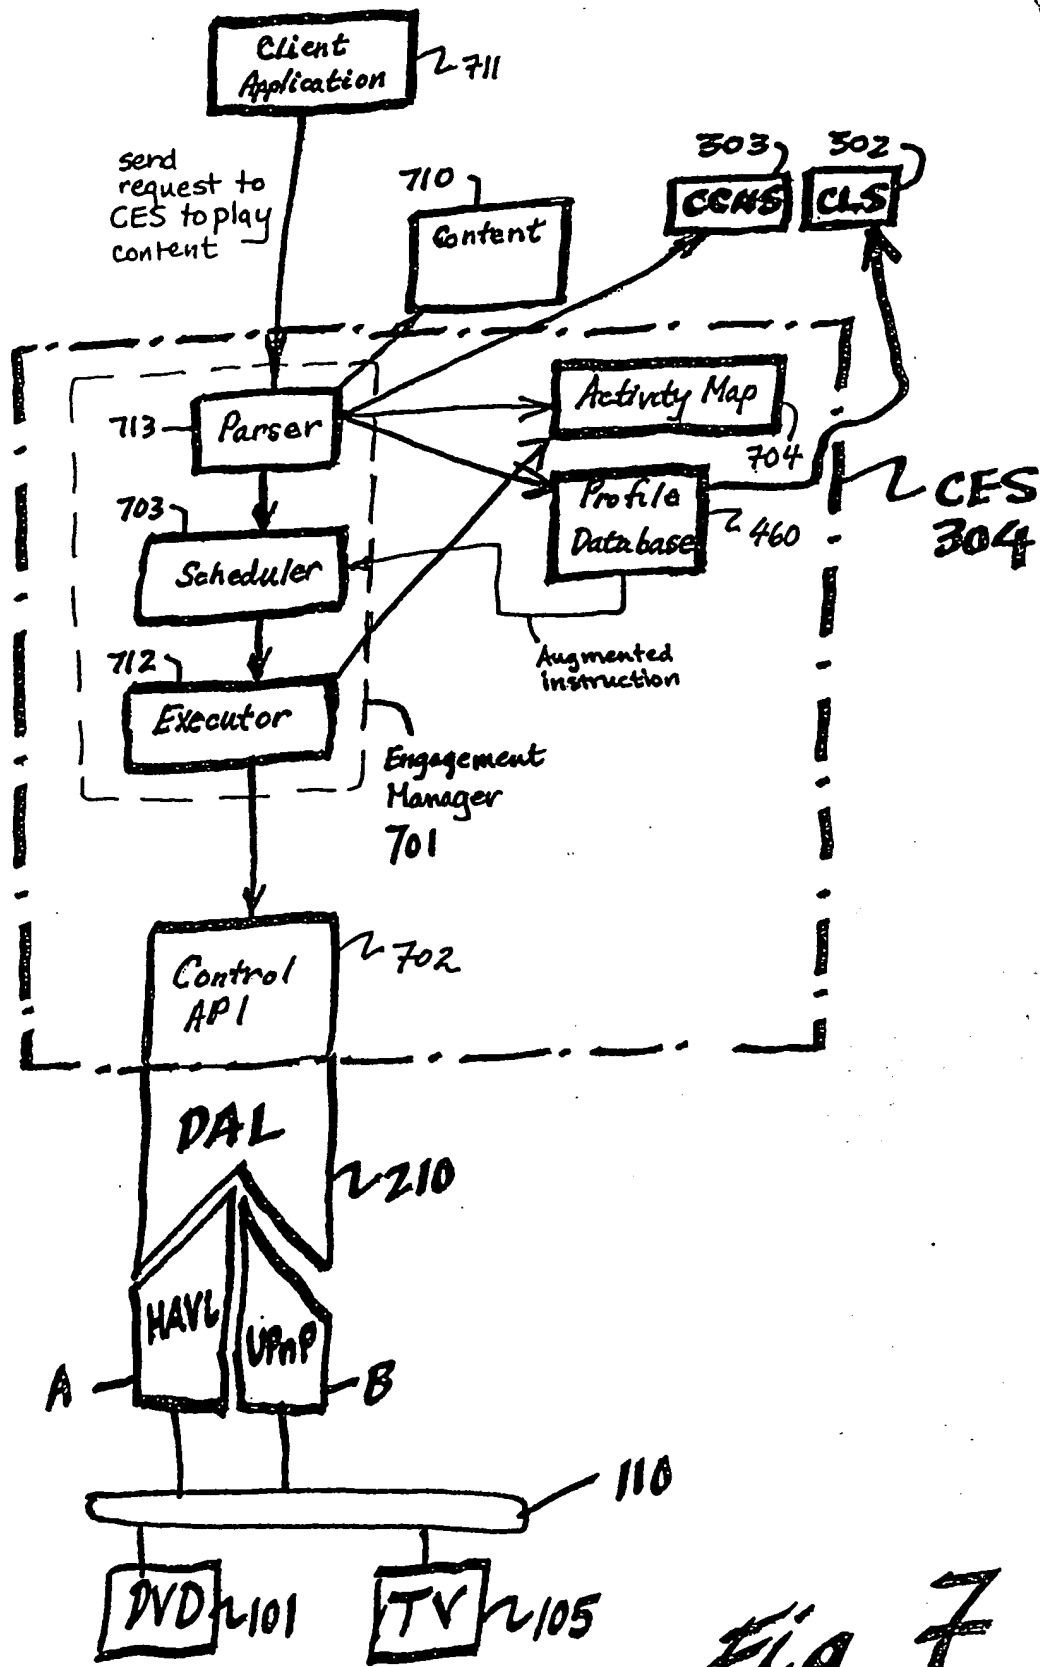 Client
Application
711
send
request to
CES to play
content
710
Content
303
302
CLS
713
Parser
Activity Map
704
703
Scheduler
Profile
Database
460
CES
304
712
Executor
Augmented
instruction
Engagement
Manager
701
Control
API
702
DAL
210
HAVi
UPnP
A
B
110
DVD
101
TV
105
Fig 7